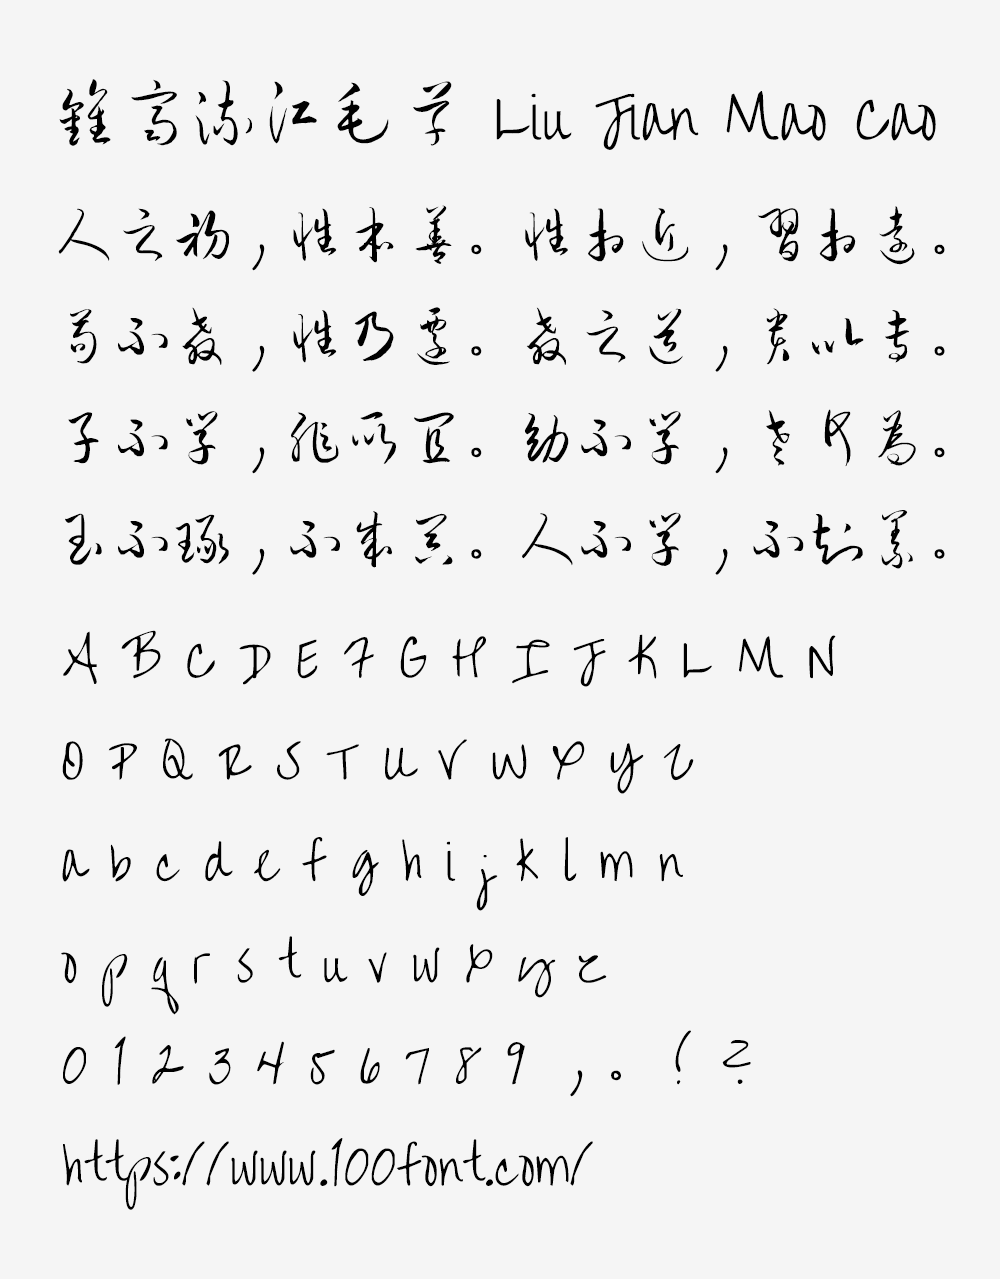 鍾齊流江毛草 Liu Jian Mao Cao
人之初，性本善。性相近，習相遠。
苟不教，性乃遷。教之道，貴以專。
子不学，非所宜。幼不学，老何為。
玉不琢，不成器。人不学，不知義。
A B C D E F G H I J K L M N
O P Q R S T U V W X Y Z
a b c d e f g h i j k l m n
o p q r s t u v w x y z
0 1 2 3 4 5 6 7 8 9 ，。！？
https://www.100font.com/